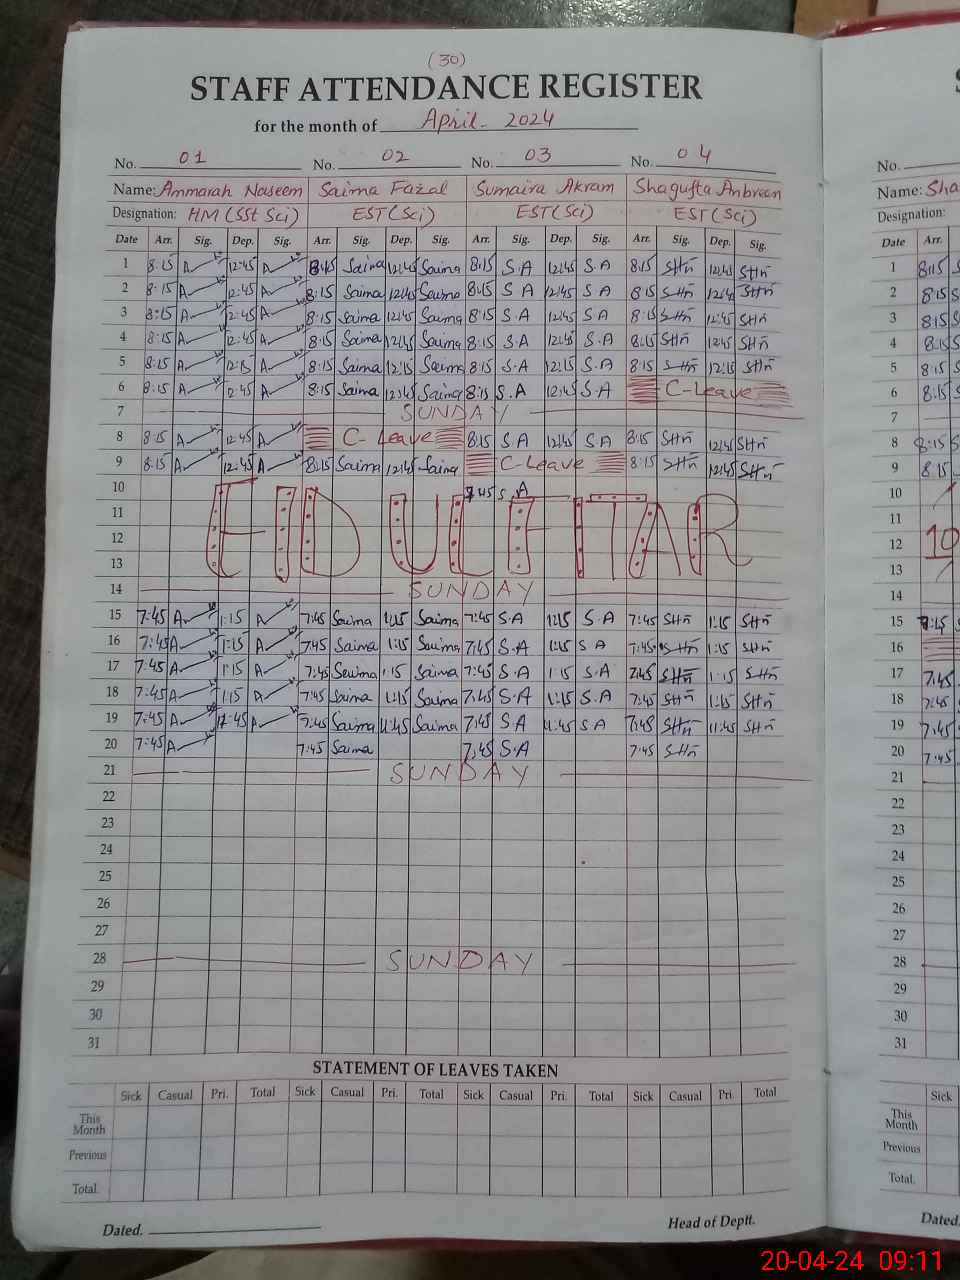 (30)
STAFF ATTENDANCE REGISTER
for the month of April - 2024
No. 01 No. 02 No. 03 No. 04 No.
Name: Ammarah Naseem Saima Fazal Sumaira Akram Shagufta Anbreen Name: Sha
Designation: HM (SSt Sci) EST (Sci) EST (Sci) EST (Sci) Designation:
Date Arr. Sig. Dep. Sig. Arr. Sig. Dep. Sig. Arr. Sig. Dep. Sig. Arr. Sig. Dep. Sig. Date Arr.
1 8:15 A 12:45 A 8:45 Saima 12:45 Saima 8:15 S.A 12:45 S.A 8:15 SHn 12:45 SHn 1 8:15
2 8:15 A 12:45 A 8:15 Saima 12:45 Saima 8:15 S A 12:45 S A 8:15 SHn 12:45 SHn 2 8:15
3 8:15 A 12:45 A 8:15 Saima 12:45 Saima 8:15 S.A 12:45 S.A 8:15 SHn 12:45 SHn 3 8:15
4 8:15 A 12:45 A 8:15 Saima 12:45 Saima 8:15 S.A 12:45 S.A 8:15 SHn 12:45 SHn 4 8:15
5 8:15 A 12:15 A 8:15 Saima 12:15 Saima 8:15 S.A 12:15 S.A 8:15 SHn 12:15 SHn 5 8:15
6 8:15 A 12:45 A 8:15 Saima 12:45 Saima 8:15 S.A 12:45 S.A C-Leave 6 8:15
7 SUNDAY 7
8 8:15 A 12:45 A C-Leave 8:15 S A 12:45 S A 8:15 SHn 12:45 SHn 8 8:15
9 8:15 A 12:45 A 8:15 Saima 12:45 Saima C-Leave 8:15 SHn 12:45 SHn 9 8:15
10 7:45 S.A 10
11 EID UL FITAR 11
12 12 10
13 13
14 SUNDAY 14
15 7:45 A 1:15 A 7:45 Saima 1:15 Saima 7:45 S.A 1:15 S.A 7:45 SHn 1:15 SHn 15 7:45
16 7:45 A 1:15 A 7:45 Saima 1:15 Saima 7:45 S.A 1:15 S A 7:45 SHn 1:15 SHn 16
17 7:45 A 1:15 A 7:45 Saima 1:15 Saima 7:45 S.A 1:15 S.A 7:45 SHn 1:15 SHn 17 7:45
18 7:45 A 1:15 A 7:45 Saima 1:15 Saima 7:45 S.A 1:15 S.A 7:45 SHn 1:15 SHn 18 7:45
19 7:45 A 12:45 A 7:45 Saima 11:45 Saima 7:45 S A 11:45 S A 7:45 SHn 11:45 SHn 19 7:45
20 7:45 A 7:45 Saima 7:45 S.A 7:45 SHn 20 7:45
21 SUNDAY 21
22 22
23 23
24 24
25 25
26 26
27 27
28 SUNDAY 28
29 29
30 30
31 31
STATEMENT OF LEAVES TAKEN
Sick Casual Pri. Total Sick Casual Pri. Total Sick Casual Pri. Total Sick Casual Pri. Total Sick
This Month This Month
Previous Previous
Total. Total.
Dated. Head of Deptt. Dated.
20-04-24 09:11